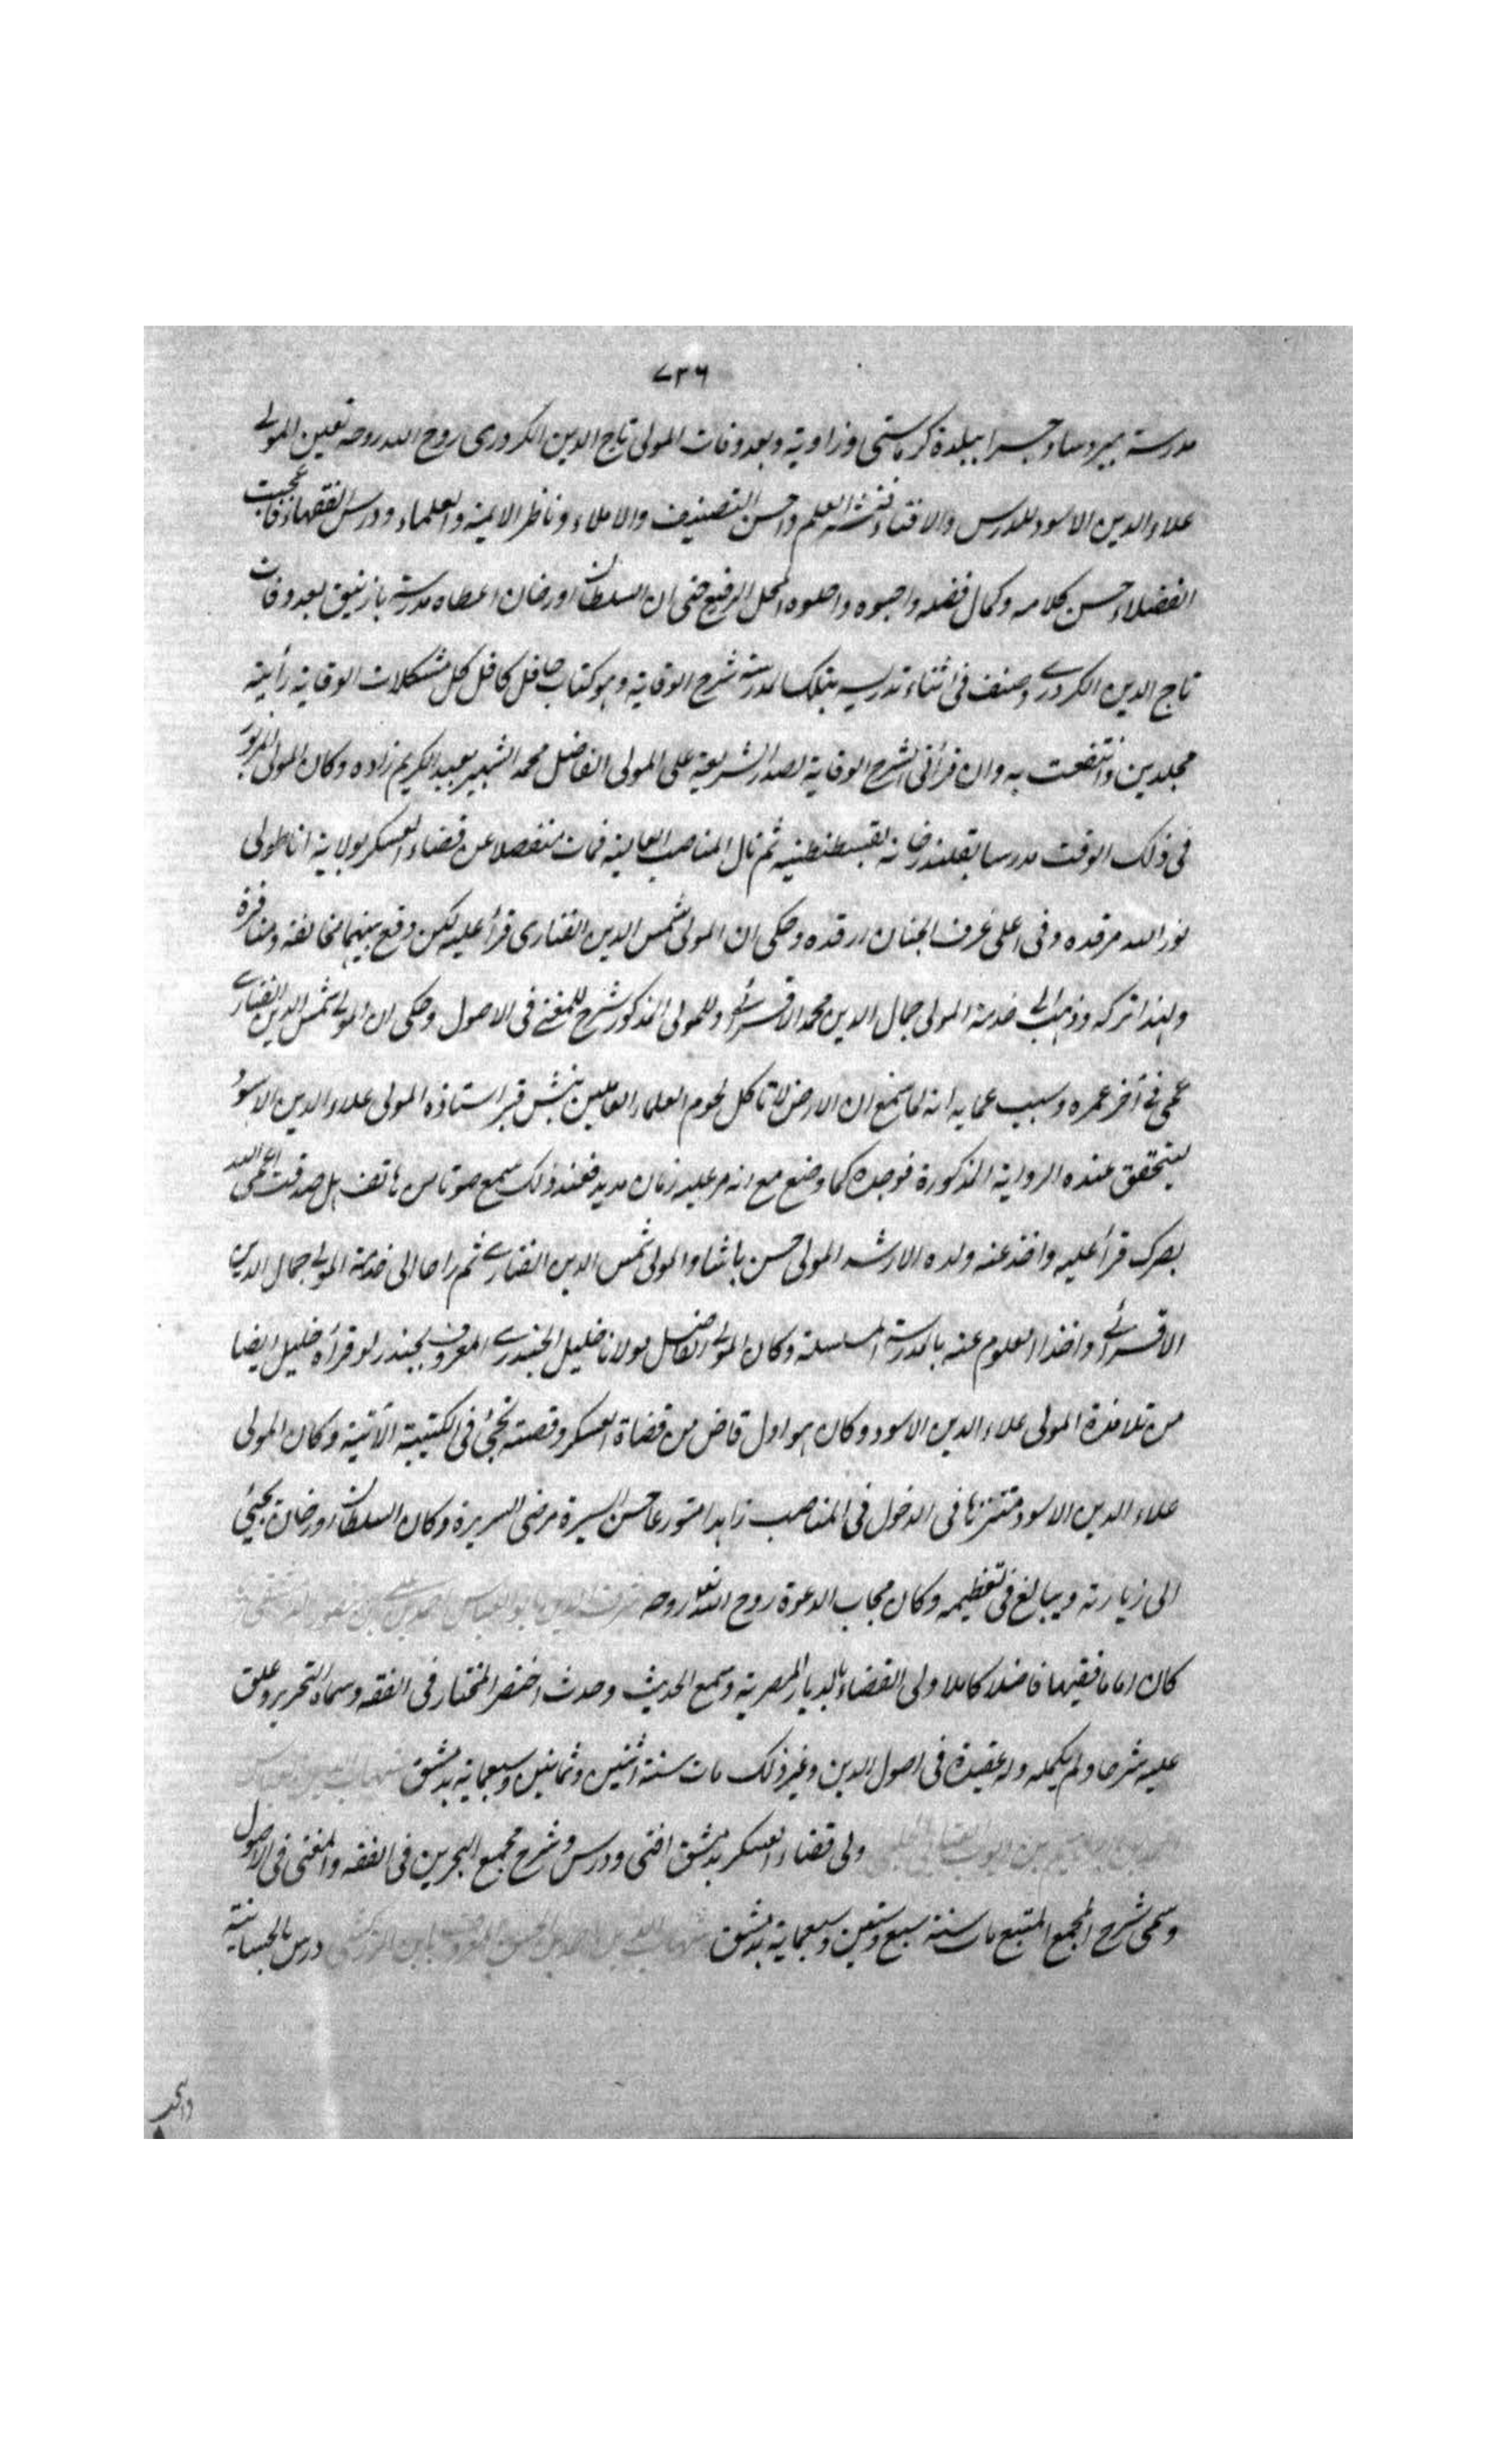 ٧٣٦
مدرسة ببروسا وجسرا ببلدة كرماستى وزاوية وبعد وفات المولى تاج الدين الكردرى روح الله روحه تعين المولى
علاء الدين الاسود للدرس والافتاء فنشر العلم واحسن التصنيف والاملاء وناظر الايمة والعلماء ودرس الفقهاء فاعجبت
الفضلاء حسن كلامه وكمال فضله واحبوه واحلوه المحل الرفيع حتى ان السلطان اورخان اعطاه مدرسة بازنيق بعد وفات
تاج الدين الكردرى وصنف فى اثناء تدريسه بتلك المدرسة شرح الوقاية وهو كتاب حافل كافل كل مشكلات الوقاية رأيته
مجلدين وانتفعت به وان قرأتى شرح الوقاية لصدر الشريعة على المولى الفاضل محمد الشهير بعبد الكريم زاده وكان المولى المزبور
فى ذلك الوقت مدرسا بقلندرخانه بقسطنطنية ثم نال المناصب العالية فمات منفصلا عن قضاء العسكر بولاية اناطولى
نور الله مرقده وفى اعلى غرف الجنان ارقده وحكى ان المولى شمس الدين الفنارى قرأ عليه لكن وقع بينهما مخالفة ومنافرة
ولهذا تركه وذهب الى خدمة المولى جمال الدين محمد الاقسرائى وللمولى المذكور شرح للمغنى فى الاصول وحكى ان المولى شمس الدين الفنارى
عمى فى آخر عمره وسبب عمايه انه لما سمع ان الارض لا تاكل لحوم العلماء العاملين نبش قبر استاذه المولى علاء الدين الاسود
ليتحقق عنده الرواية المذكورة فوجده كما وضع مع انه مر عليه زمان مديد فعند ذلك سمع صوتا من هاتف هل صدقت اعمى الله
بصرك قرأ عليه واخذ عنه ولده الارشد المولى حسن باشا والمولى شمس الدين الفنارى ثم راحا الى خدمة المولى جمال الدين
الاقسرائى واخذا العلوم عنه بالمدرسة المسلسلة وكان المولى الفاضل مولانا خليل الجندرى المعروف بجندرلو قرأه خليل ايضا
من تلامذة المولى علاء الدين الاسود وكان هو اول قاض من قضاة العسكر وقصته تجئ فى الكتيبة الآتية وكان المولى
علاء الدين الاسود متنزها فى الدخول فى المناصب زاهدا متورعا حسن السيرة مرضى السريرة وكان السلطان اورخان يجيئ
الى زيارته ويبالغ فى تعظيمه وكان مجاب الدعوة روح الله تعالى روحه شرف الدين ابو العباس احمد بن على بن منصور الدمشقى
كان اماما فقيها فاضلا كاملا ولى القضاء بالديار المصرية وسمع الحديث وحدث اختصر المختار فى الفقه وسماه التحرير وعلق
عليه شرحا ولم يكمله وله عقيدة فى اصول الدين وغير ذلك مات سنة اثنين وثمانين وسبعماية بدمشق شهاب الدين
احمد بن ابراهيم بن ايوب العينتابى الحلبى ولى قضاء العسكر بدمشق افتى ودرس وشرح مجمع البحرين فى الفقه والمغنى فى الاصول
وسمى شرح المجمع المنبع مات سنة سبع وستين وسبعماية بدمشق شهاب الدين احمد بن الحسن المعروف بابن الزركشى درس بالحسامية